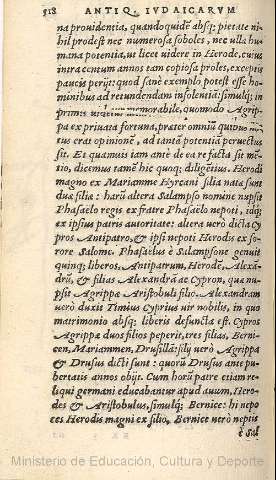 518 ANTIQ. IVDAICARVM
na prouidentia, quandoquidē absq; pietate ni-
hil prodest nec numerosa soboles, nec ulla hu-
mana potentia, ut licet uidere in Herode, cuius
intra centum annos tam copiosa proles, exceptis
paucis perijt: quod sanè exemplo potest esse ho-
minibus ad retundendam insolentiā: simulq; in
primis memorabile, quomodo Agrip-
pa ex priuata fortuna, præter omniū
tus erat opinionē, ad tantā potentiā peruectus
sit. Et quamuis iam antè de ea re facta sit mē-
tio, dicemus tamē hic quoq; diligētius. Herodi
magno ex Mariamme Hyrcani filia natæ sunt
duæ filiæ: harū altera Salampso nomine nupsit
Phasaëlo regis ex fratre Phasaëlo nepoti, idq;
ex ipsius patris autoritate: altera uerò dicta Cy
pros Antipatro, & ipsi nepoti Herodis ex so-
rore Salome. Phasaelus è Salampsone genuit
quinq; liberos, Antipatrum, Herodē, Alexan-
drū, & filias Alexandrā ac Cypron, quæ nu-
psit Agrippæ Aristobuli filio. Alexandram
uerò duxit Timius Cyprius uir nobilis, in quo
matrimonio absq; liberis defuncta est. Cypros
Agrippæ duos filios peperit, tres filias, Berni-
cen, Mariammen, Drusillā: filij uerò Agrippa
& Drusus dicti sunt: quorū Drusus ante pu-
bertatis annos obijt. Cum horū patre etiam re-
liqui germani educabantur apud auum, Hero-
des & Aristobulus, simulq; Bernice: hi nepo
tes Herodis magni ex filio, Bernice uerò neptis
è Sal
Ministerio de Educación, Cultura y Deporte